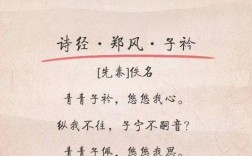 诗经·郑风·子衿
[先秦]佚名
青青子衿，悠悠我心。
纵我不往，子宁不嗣音？
青青子佩，悠悠我思。